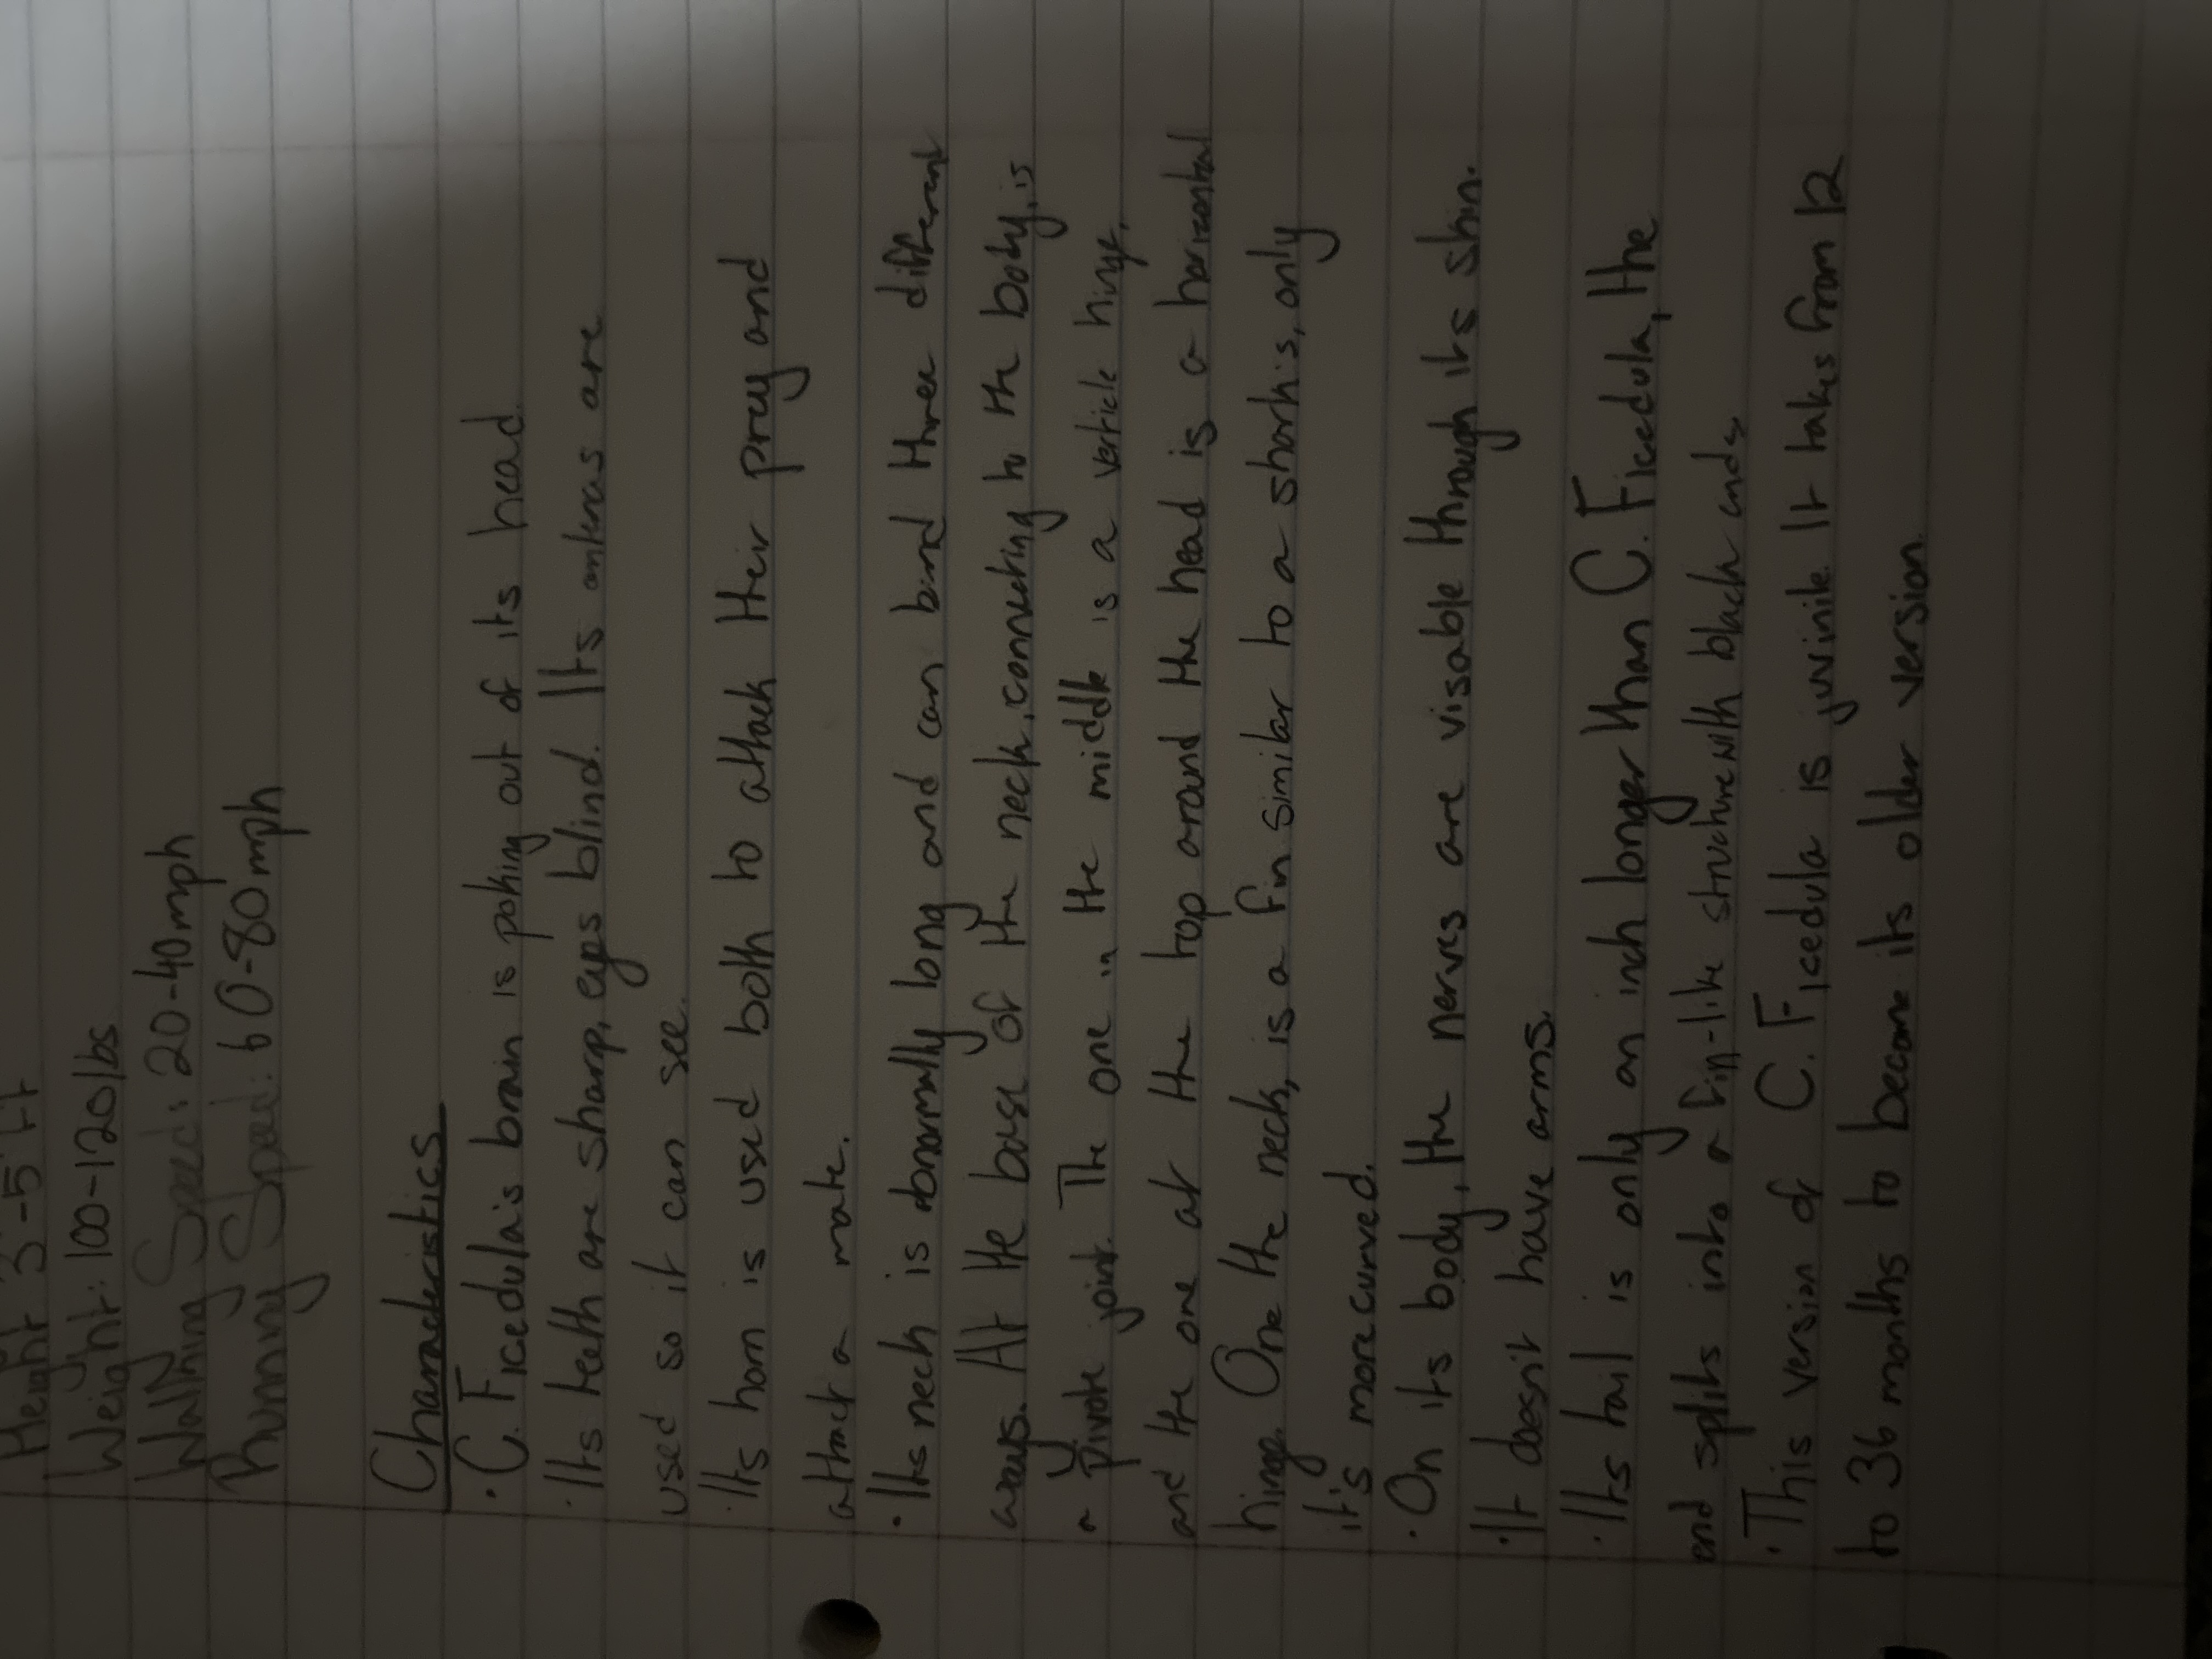 Height 3-5 ft
Weight: 100-120lbs
Walking Speed: 20-40mph
Running Speed: 60-80mph
Characteristics
· C. Ficedula's brain is poking out of its head.
· Its teeth are sharp, eyes blind. Its antenas are
used so it can see.
· Its horn is used both to attack their prey and
attract a mate.
· Its neck is abnormally long and can bend three different
ways. At the base of the neck, connecting to the body, is
a pivote joint. The one in the middle is a verticle hinge,
and the one at the top around the head is a horizontal
hinge. One the neck, is a fin similar to a shark's, only
it's more curved.
· On its body, the nerves are visable through its skin.
· It doesn't have arms.
· Its tail is only an inch longer than C. Ficedula, the
end splits into a fin-like structure with black ends.
· This version of C. Ficedula is juvinile. It takes from 12
to 36 months to become its older version.